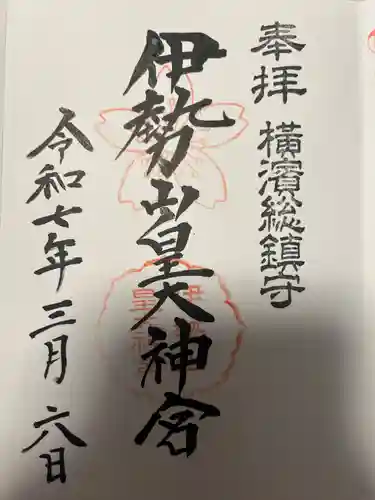 奉拝 橫濱総鎮守
伊勢山皇大神宮
令和七年三月六日